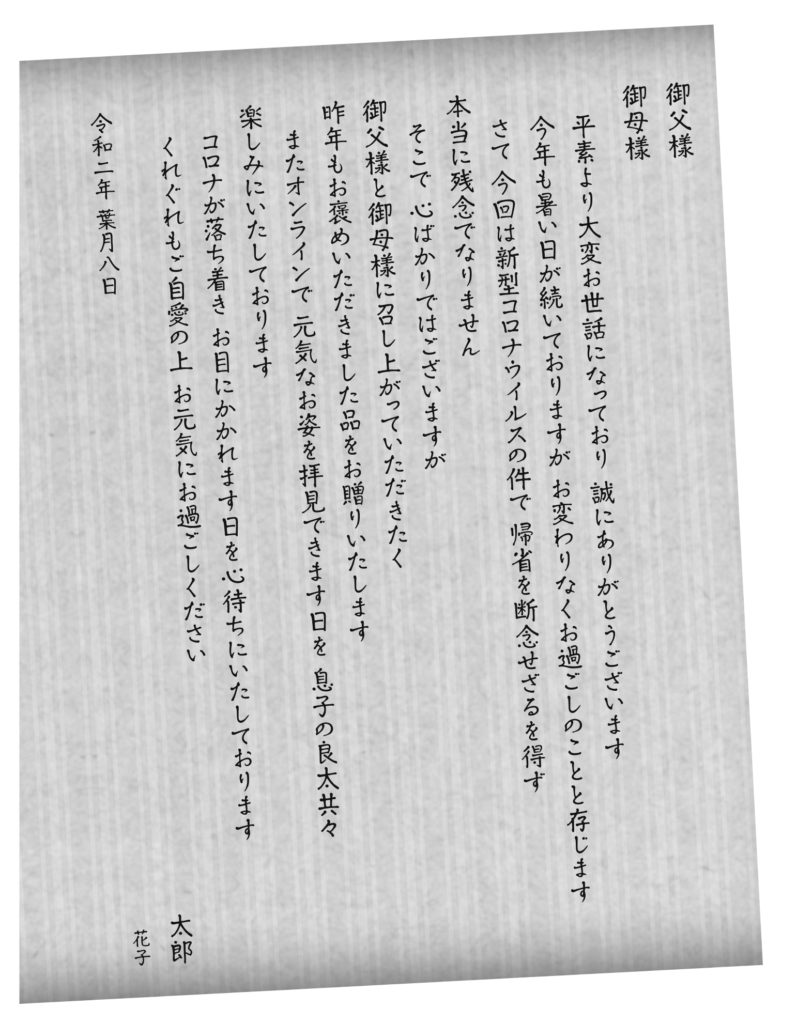 御父様
御母様
平素より大変お世話になっており 誠にありがとうございます
今年も暑い日が続いておりますが お変わりなくお過ごしのことと存じます
さて 今回は新型コロナウイルスの件で 帰省を断念せざるを得ず
本当に残念でなりません
そこで 心ばかりではございますが
御父様と御母様に召し上がっていただきたく
昨年もお褒めいただきました品をお贈りいたします
またオンラインで 元気なお姿を拝見できます日を 息子の良太共々
楽しみにいたしております
コロナが落ち着き お目にかかれます日を心待ちにいたしております
くれぐれもご自愛の上 お元気にお過ごしください
太郎
花子
令和二年 葉月八日